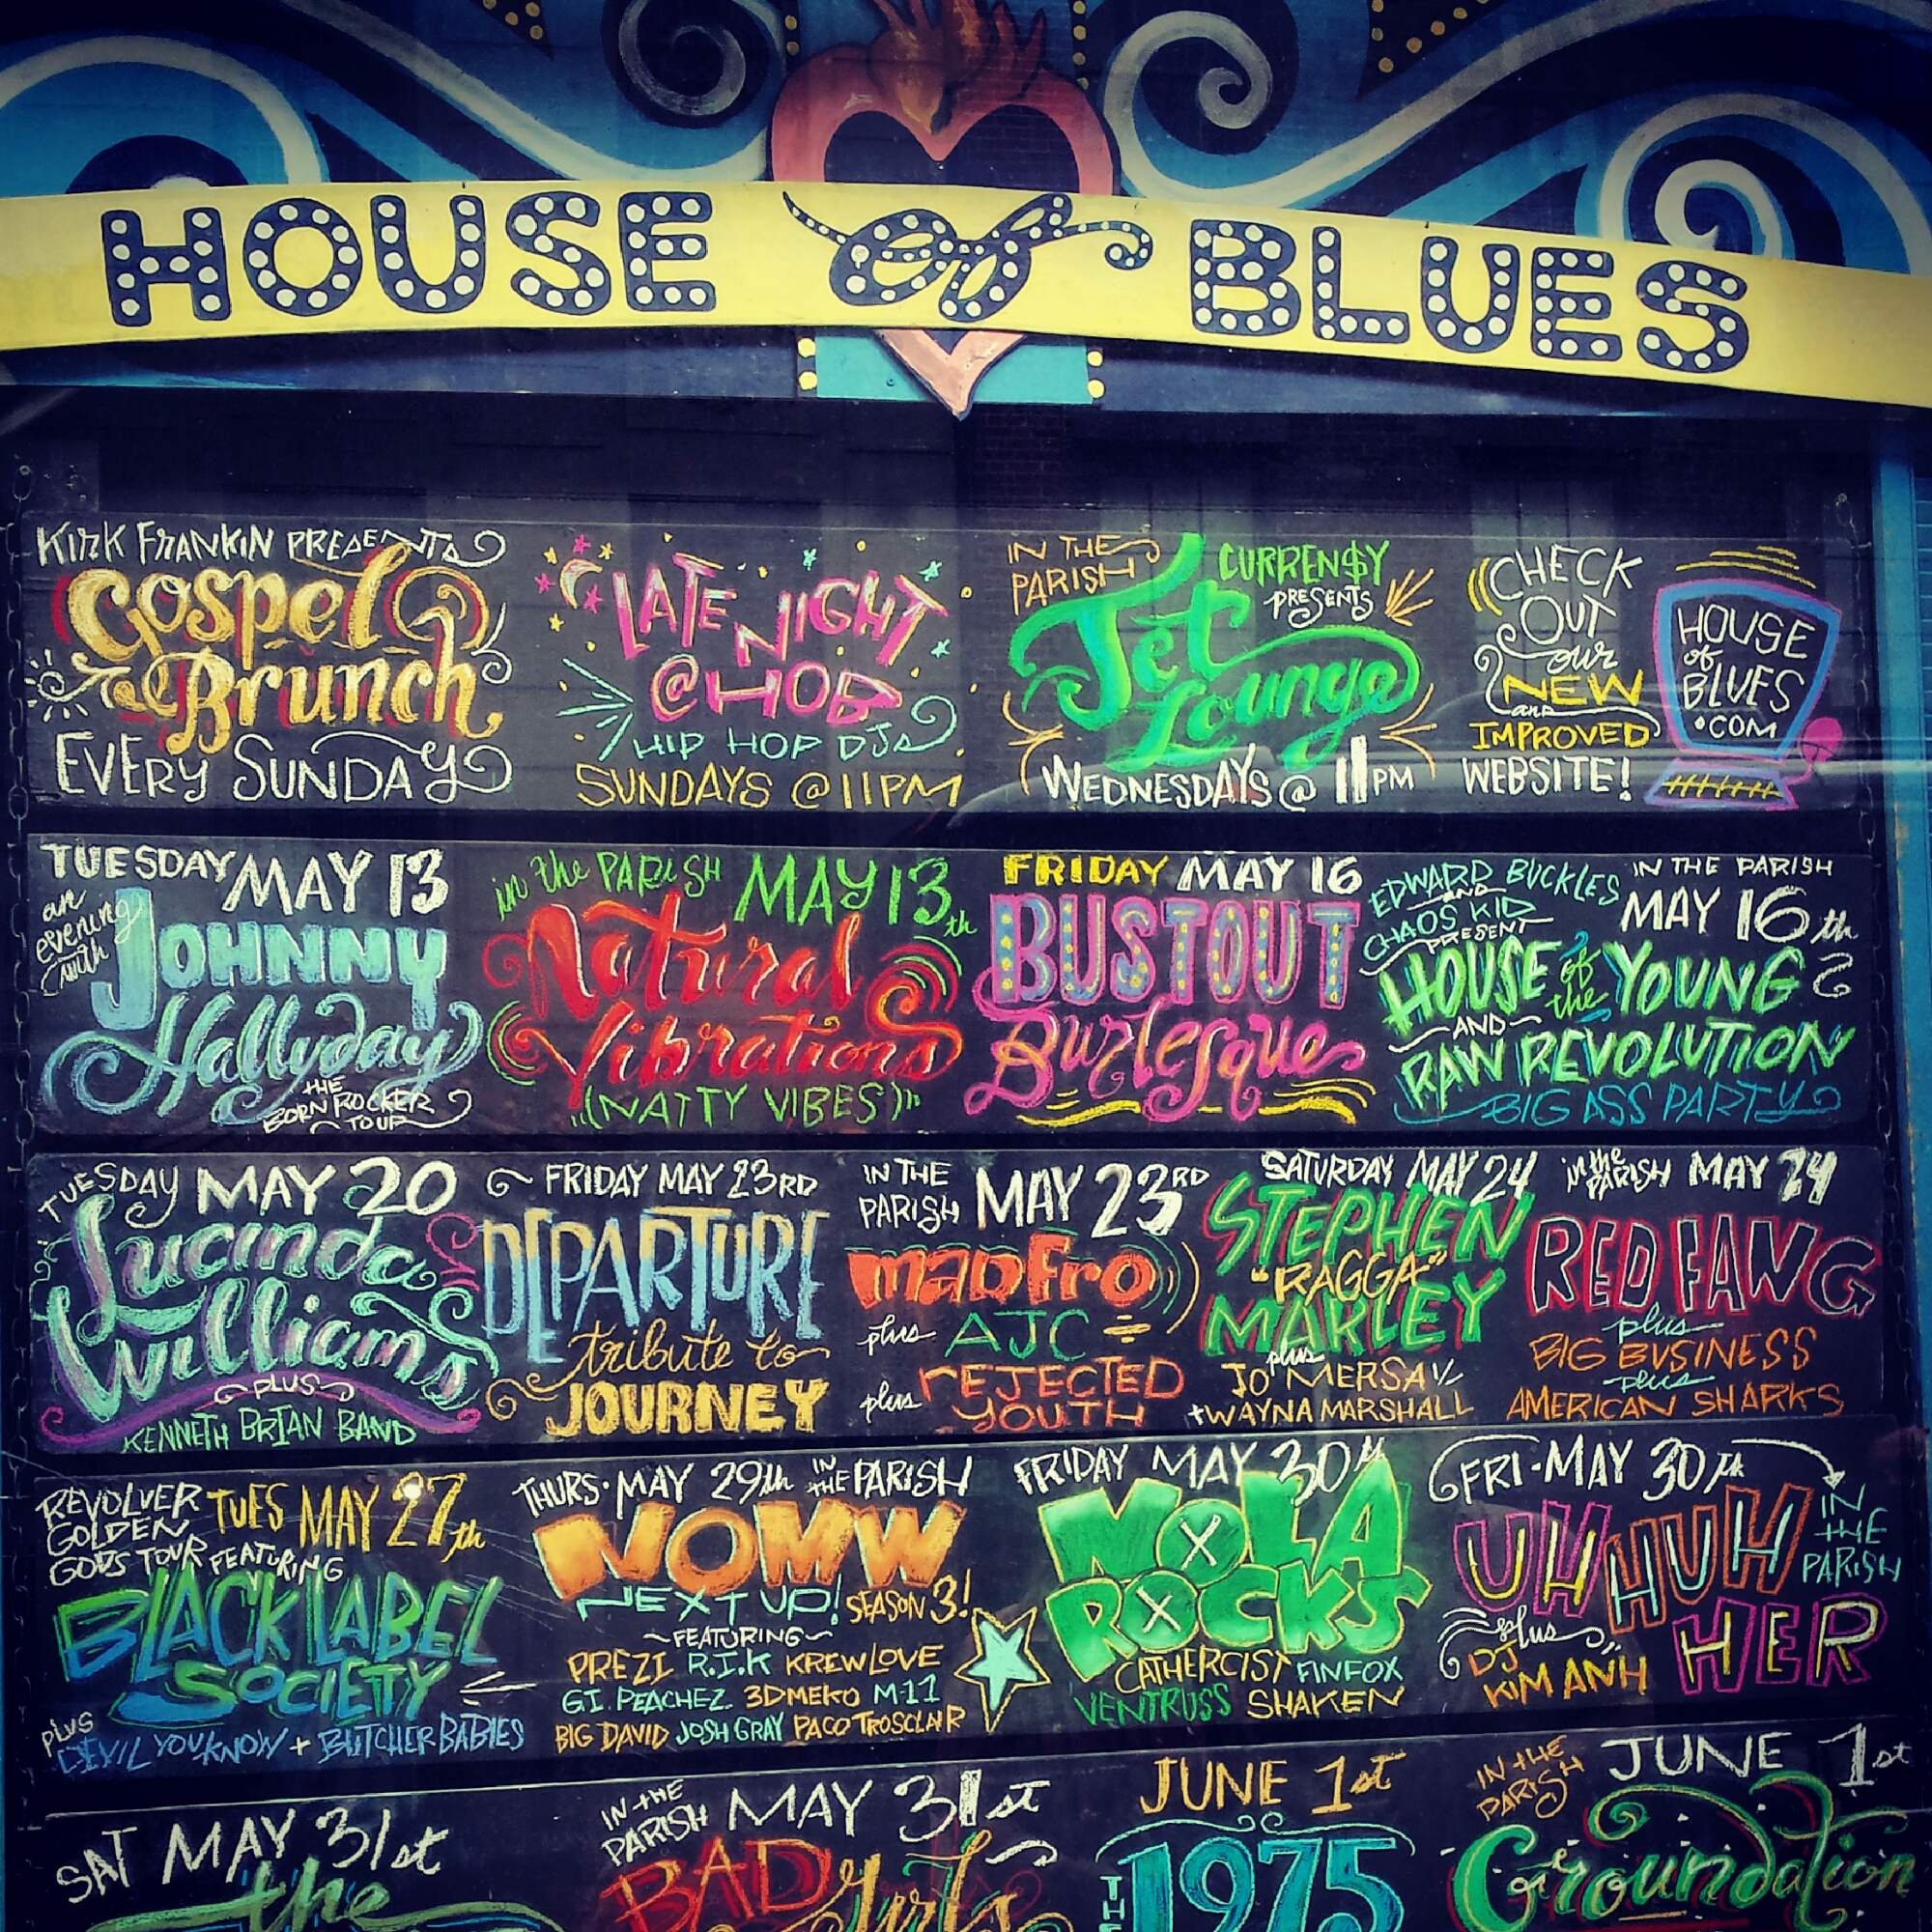 HOUSE of BLUES
KIRK FRANKIN PRESENTS
Gospel
Brunch
EVERY SUNDAY
LATE NIGHT
@ HOB
HIP HOP DJs
SUNDAYS @ 11PM
IN THE
PARISH
CURREN$Y
PRESENTS
Jet
Lounge
WEDNESDAYS @ 11PM
CHECK
OUT
our
NEW
and
IMPROVED
WEBSITE!
HOUSE
of
BLUES
.COM
TUESDAY MAY 13
an
evening
with
JOHNNY
Hallyday
THE
BORN ROCKER
TOUR
in the PARISH MAY 13th
Natural
Vibrations
(NATTY VIBES)
FRIDAY MAY 16
BUSTOUT
Burlesque
EDWARD BUCKLES
AND
CHAOS KID
PRESENT
IN THE PARISH
MAY 16th
HOUSE of the YOUNG
AND
RAW REVOLUTION
BIG ASS PARTY
TUESDAY MAY 20
Lucinda
Williams
PLUS
KENNETH BRIAN BAND
FRIDAY MAY 23RD
DEPARTURE
tribute to
JOURNEY
IN THE
PARISH MAY 23RD
MADFRO
plus AJC
plus REJECTED
YOUTH
SATURDAY MAY 24
STEPHEN
"RAGGA"
MARLEY
plus
JO MERSA
+ WAYNA MARSHALL
in the
PARISH MAY 24
RED FANG
plus
BIG BUSINESS
plus
AMERICAN SHARKS
REVOLVER
GOLDEN
GODS TOUR FEATURING
TUES MAY 27th
BLACK LABEL
SOCIETY
PLUS
DEVIL YOU KNOW + BUTCHER BABIES
THURS. MAY 29th IN THE PARISH
NOMW
NEXT UP! SEASON 3!
FEATURING
PREZI R.I.K KREWLOVE
G.I. PEACHEZ 3DMEKO M-11
BIG DAVID JOSH GRAY PACO TROSCLAIR
FRIDAY MAY 30th
NOLA
ROCKS
CATHERCIST FINFOX
VENTRUSS SHAKEN
FRI. MAY 30th
IN
THE
PARISH
UH HUH
HER
plus
DJ
KIM ANH
SAT MAY 31st
the
IN THE
PARISH MAY 31st
BAD Girls
JUNE 1st
THE 1975
IN THE
PARISH
JUNE 1st
Groundation